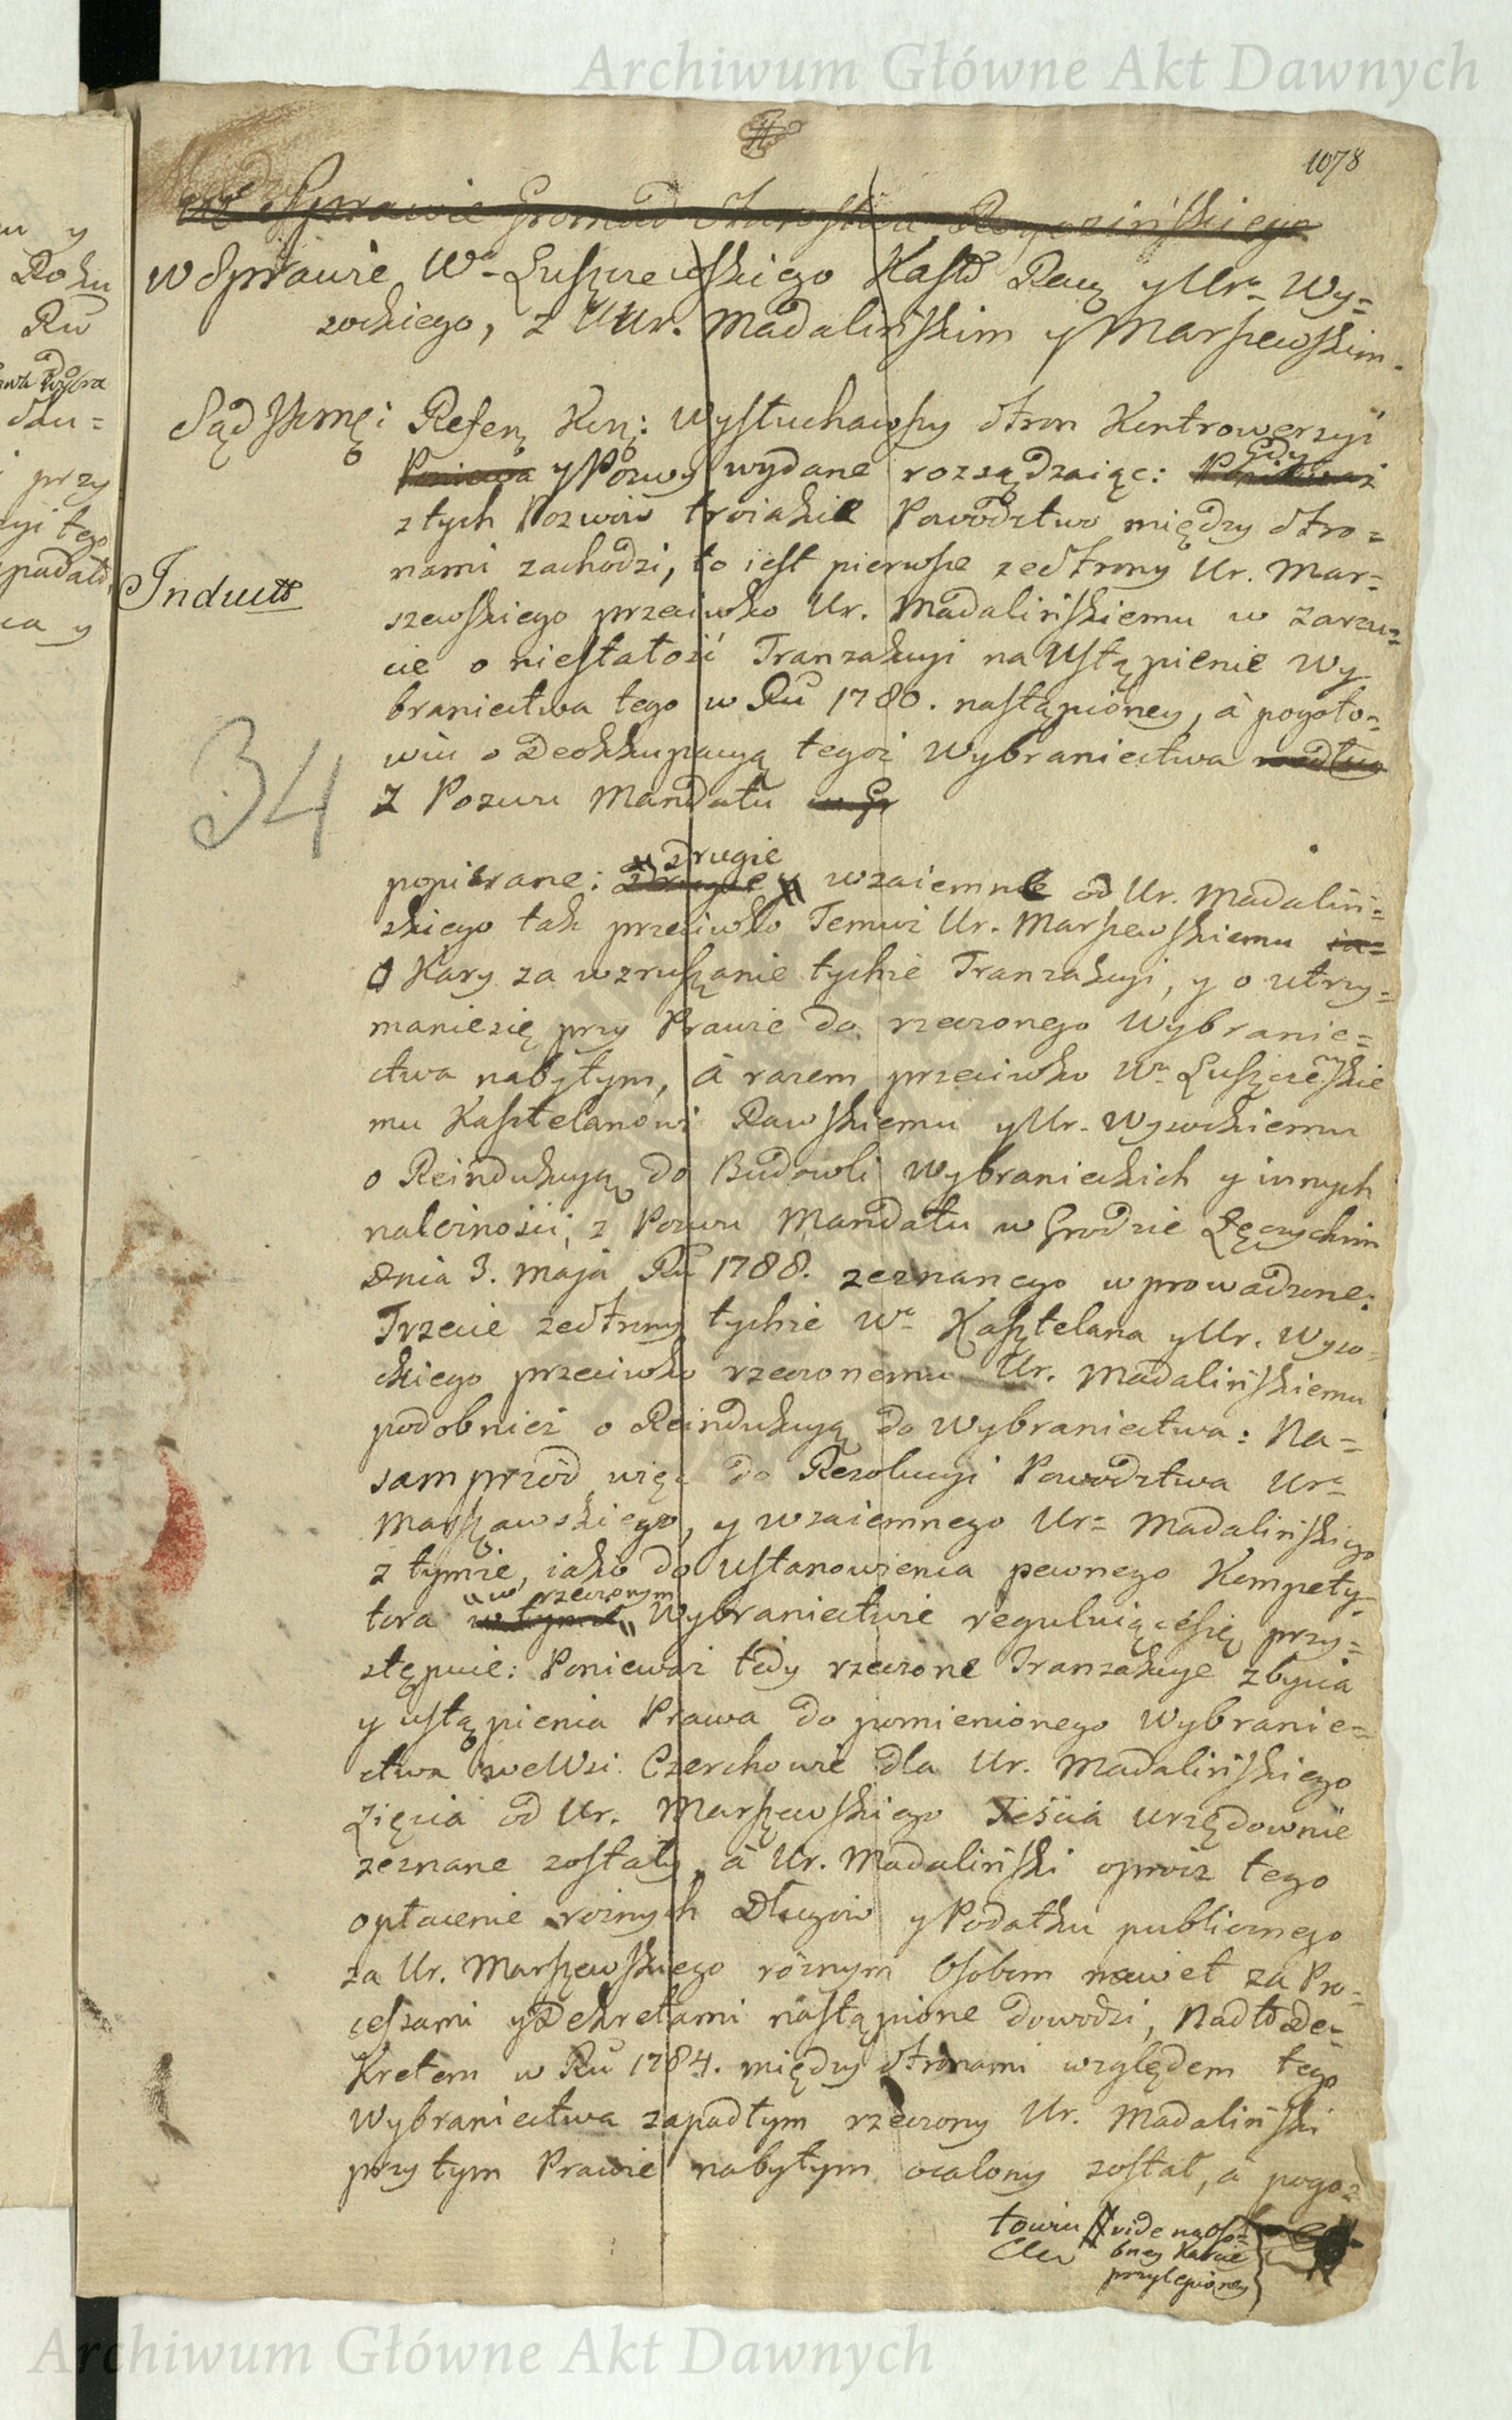 Archiwum Główne Akt Dawnych
1078
w Sprawie Gromad Starostwa
w Sprawie Wo Łuszczewskiego Kasztt Raw: y Uro Wy=
sockiego, z UUr. Madalińskim y Marszewskim.
Sąd JKmci Referą Krą: Wysłuchawszy Stron Kontrowersyi
Poniewa y Pozwy wydane rozsądzaiąc: gdy Ponieważ
z tych Pozwow troiakie Powodztwo między Stro=
nami zachodzi, to iest pierwsze ze Strony Ur. Mar=
Induct
szewskiego przeciwko Ur. Madalińskiemu w zarzu=
cie o niestałość Tranzakcyi na Ustąpienie Wy
braniectwa tego w Ru 1780. nastąpioney, à pogoto=
wiu o Deokkupacyą tegoż Wybraniectwa
34
z Pozwu Mandatu
popierane: drugie wzaiemnie od Ur. Madaliń=
skiego tak przeciwko Temuż Ur. Marszewskiemu ia=
o Kary za wzruszanie tychże Tranzakcyi, y o utrzy=
manie się przy Prawie do rzeczonego Wybranie=
ctwa nabytym, à razem przeciwko Wo Łuszczewskie
mu Kasztelanowi Rawskiemu y Ur. Wysockiemu
o Reindukcyą do Budowli Wybranieckich y innych
należności, z Pozwu Mandatu w Grodzie Łęczyckim
Dnia 3. Maja Ru 1788. zeznanego wprowadzone:
Trzecie ze Strony tychże Wo Kasztelana y Ur. Wyso=
ckiego przeciwko rzeczonemu Ur. Madalińskiemu
podobnież o Reindukcyą do Wybraniectwa: Na=
samprzód więc do Rezolucyi Powodztwa Uro
Marszawskiego, y wzaiemnego Uro Madalińskiego
z tymże, iako do ustanowienia pewnego Kompety=
tora w rzeczonym w tymże Wybraniectwie reguluiące się przy=
stępuie: Ponieważ tedy rzeczone Tranzakcye zbycia
y ustąpienia Prawa do pomienionego Wybranie=
ctwa we Wsi Czerchowie dla Ur. Madalińskiego
Zięcia od Ur. Marszewskiego Teścia urzędownie
zeznane zostały, à Ur. Madaliński oprócz tego
opłacenie rożnych Długow y Podatku publicznego
za Ur. Marszewskiego rożnym Osobom nawet za Pro=
cessami y Dekretami nastąpione dowodzi, Nadto De=
kretem w Ru 1784. między Stronami względem tego
Wybraniectwa zapadłym rzeczony Ur. Madaliński
przy tym Prawie nabytym ocalony został, à pogo=
towiu vide na oso=
bney Karcie
przylepioney
Archiwum Główne Akt Dawnych